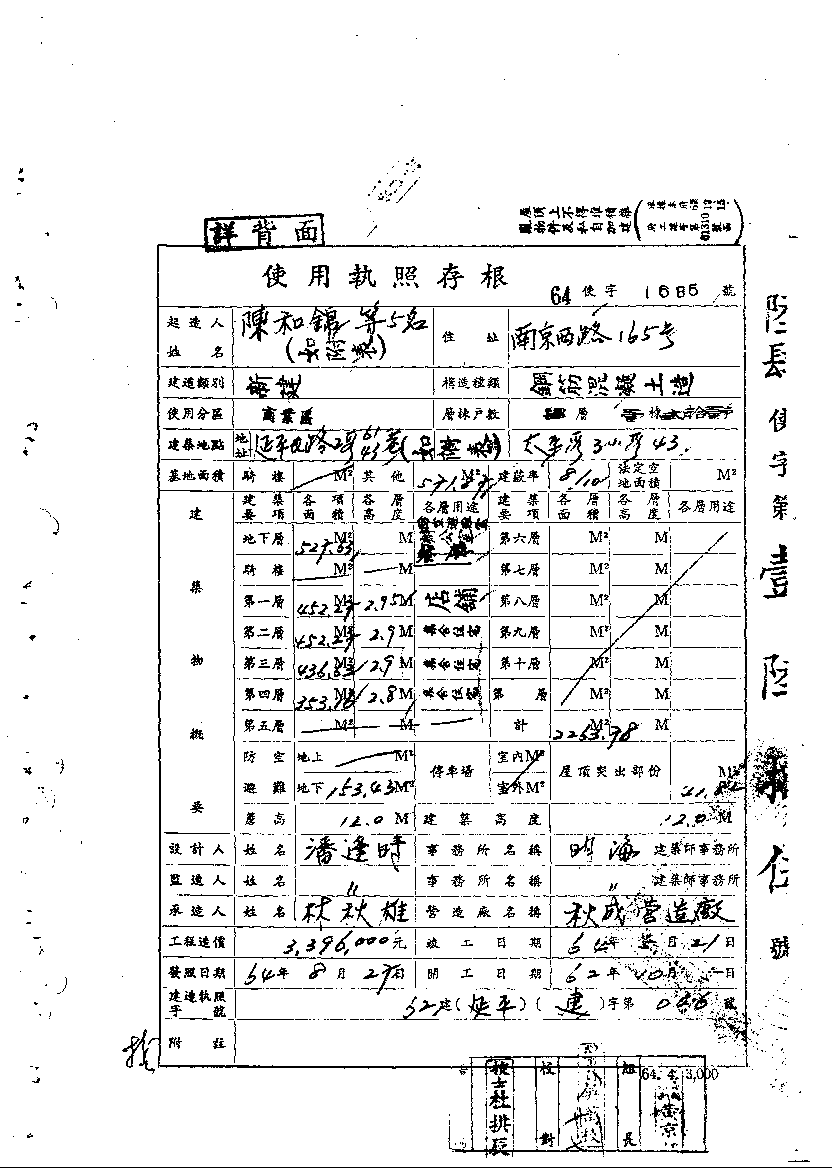 屋頂上不得堆積雜
亂物件及私自加建
詳背面
使用執照存根
64 使字 1685 號
起造人姓名 陳和錦等5名 (如附表) 住址 南京西路165號
建造類別 新建 構造種類 鋼筋混凝土造
使用分區 商業區 層棟戶數 層 棟
建築地點 地址 延平北路2段61 43巷(如附表) 太平段3小段43.
基地面積 騎樓 M² 其他 M² 建蔽率 8/10 法定空地面積 M²
建築物概要 建築要項 各項面積 各層高度 各層用途 建築要項 各層面積 各層高度 各層用途
地下層 527.63 M² M 第六層 M² M
騎樓 M² M 第七層 M² M
第一層 452.27 M² 2.95M 店舖 第八層 M² M
第二層 452.27 M² 2.9M 集合住宅 第九層 M² M
第三層 436.63 M² 2.9M 集合住宅 第十層 M² M
第四層 353.16 M² 2.8M 集合住宅 第 層 M² M
第五層 M² M 計 2263.78 M² M
防空避難 地上 M² 停車場 室內M² 屋頂突出部份 M²
地下 153.43M² 室外M²
簷高 12.0 M 建築高度 12.0 M
設計人 姓名 潘逢時 事務所名稱 明海 建築師事務所
監造人 姓名 〃 事務所名稱 〃 建築師事務所
承造人 姓名 林秋雄 營造廠名稱 秋成營造廠
工程造價 3,396,000元 竣工日期 64年 月21日
發照日期 64年8月27日 開工日期 62年10月 日
建造執照字號 62建(延平)(建)字第066號
附註
64. 4. 3,000
校對
組長
陸長使字第壹陸 號